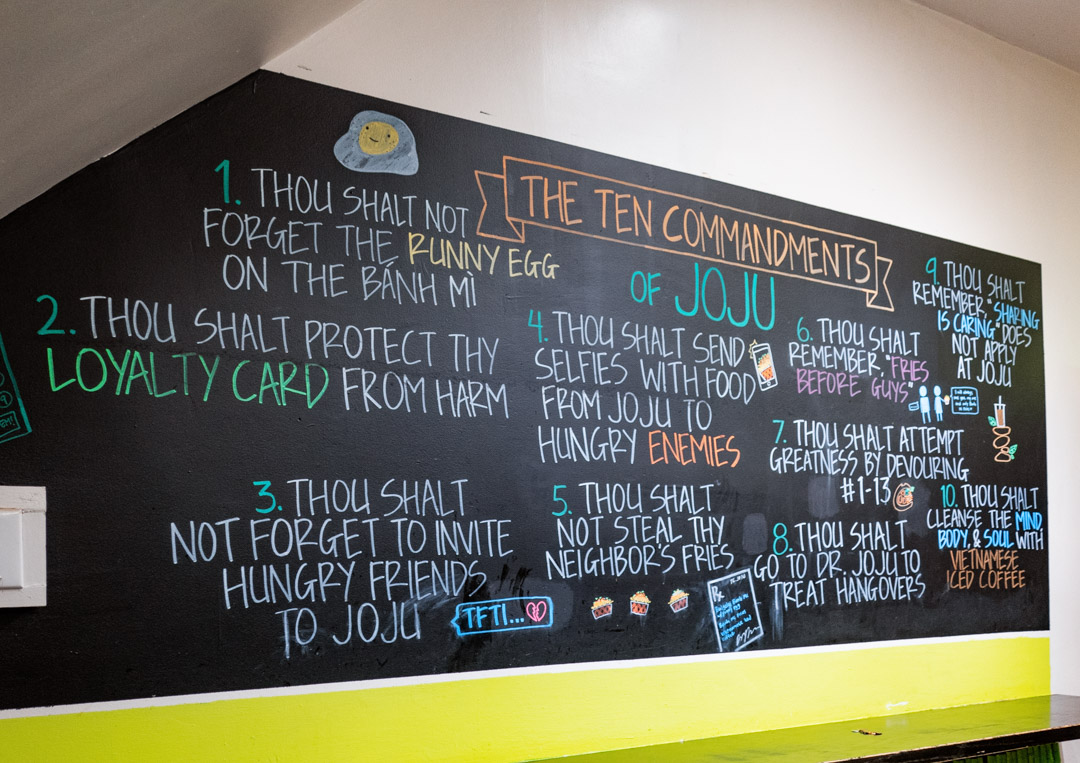 THE TEN COMMANDMENTS
OF JOJU
1. THOU SHALT NOT
FORGET THE RUNNY EGG
ON THE BÁNH MÌ
2. THOU SHALT PROTECT THY
LOYALTY CARD FROM HARM
3. THOU SHALT
NOT FORGET TO INVITE
HUNGRY FRIENDS
TO JOJU
TFTI...
4. THOU SHALT SEND
SELFIES WITH FOOD
FROM JOJU TO
HUNGRY ENEMIES
5. THOU SHALT
NOT STEAL THY
NEIGHBOR'S FRIES
6. THOU SHALT
REMEMBER "FRIES
BEFORE GUYS"
7. THOU SHALT ATTEMPT
GREATNESS BY DEVOURING
#1-13
8. THOU SHALT
GO TO DR. JOJU TO
TREAT HANGOVERS
Rx
9. THOU SHALT
REMEMBER, "SHARING
IS CARING" DOES
NOT APPLY
AT JOJU
10. THOU SHALT
CLEANSE THE MIND,
BODY, & SOUL WITH
VIETNAMESE
ICED COFFEE